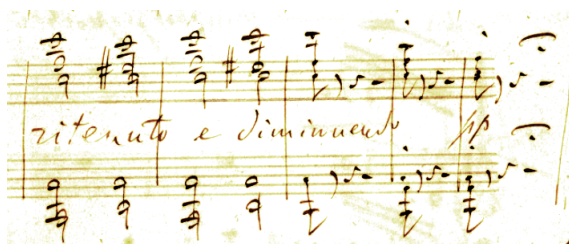 ritenuto e diminuendo pp